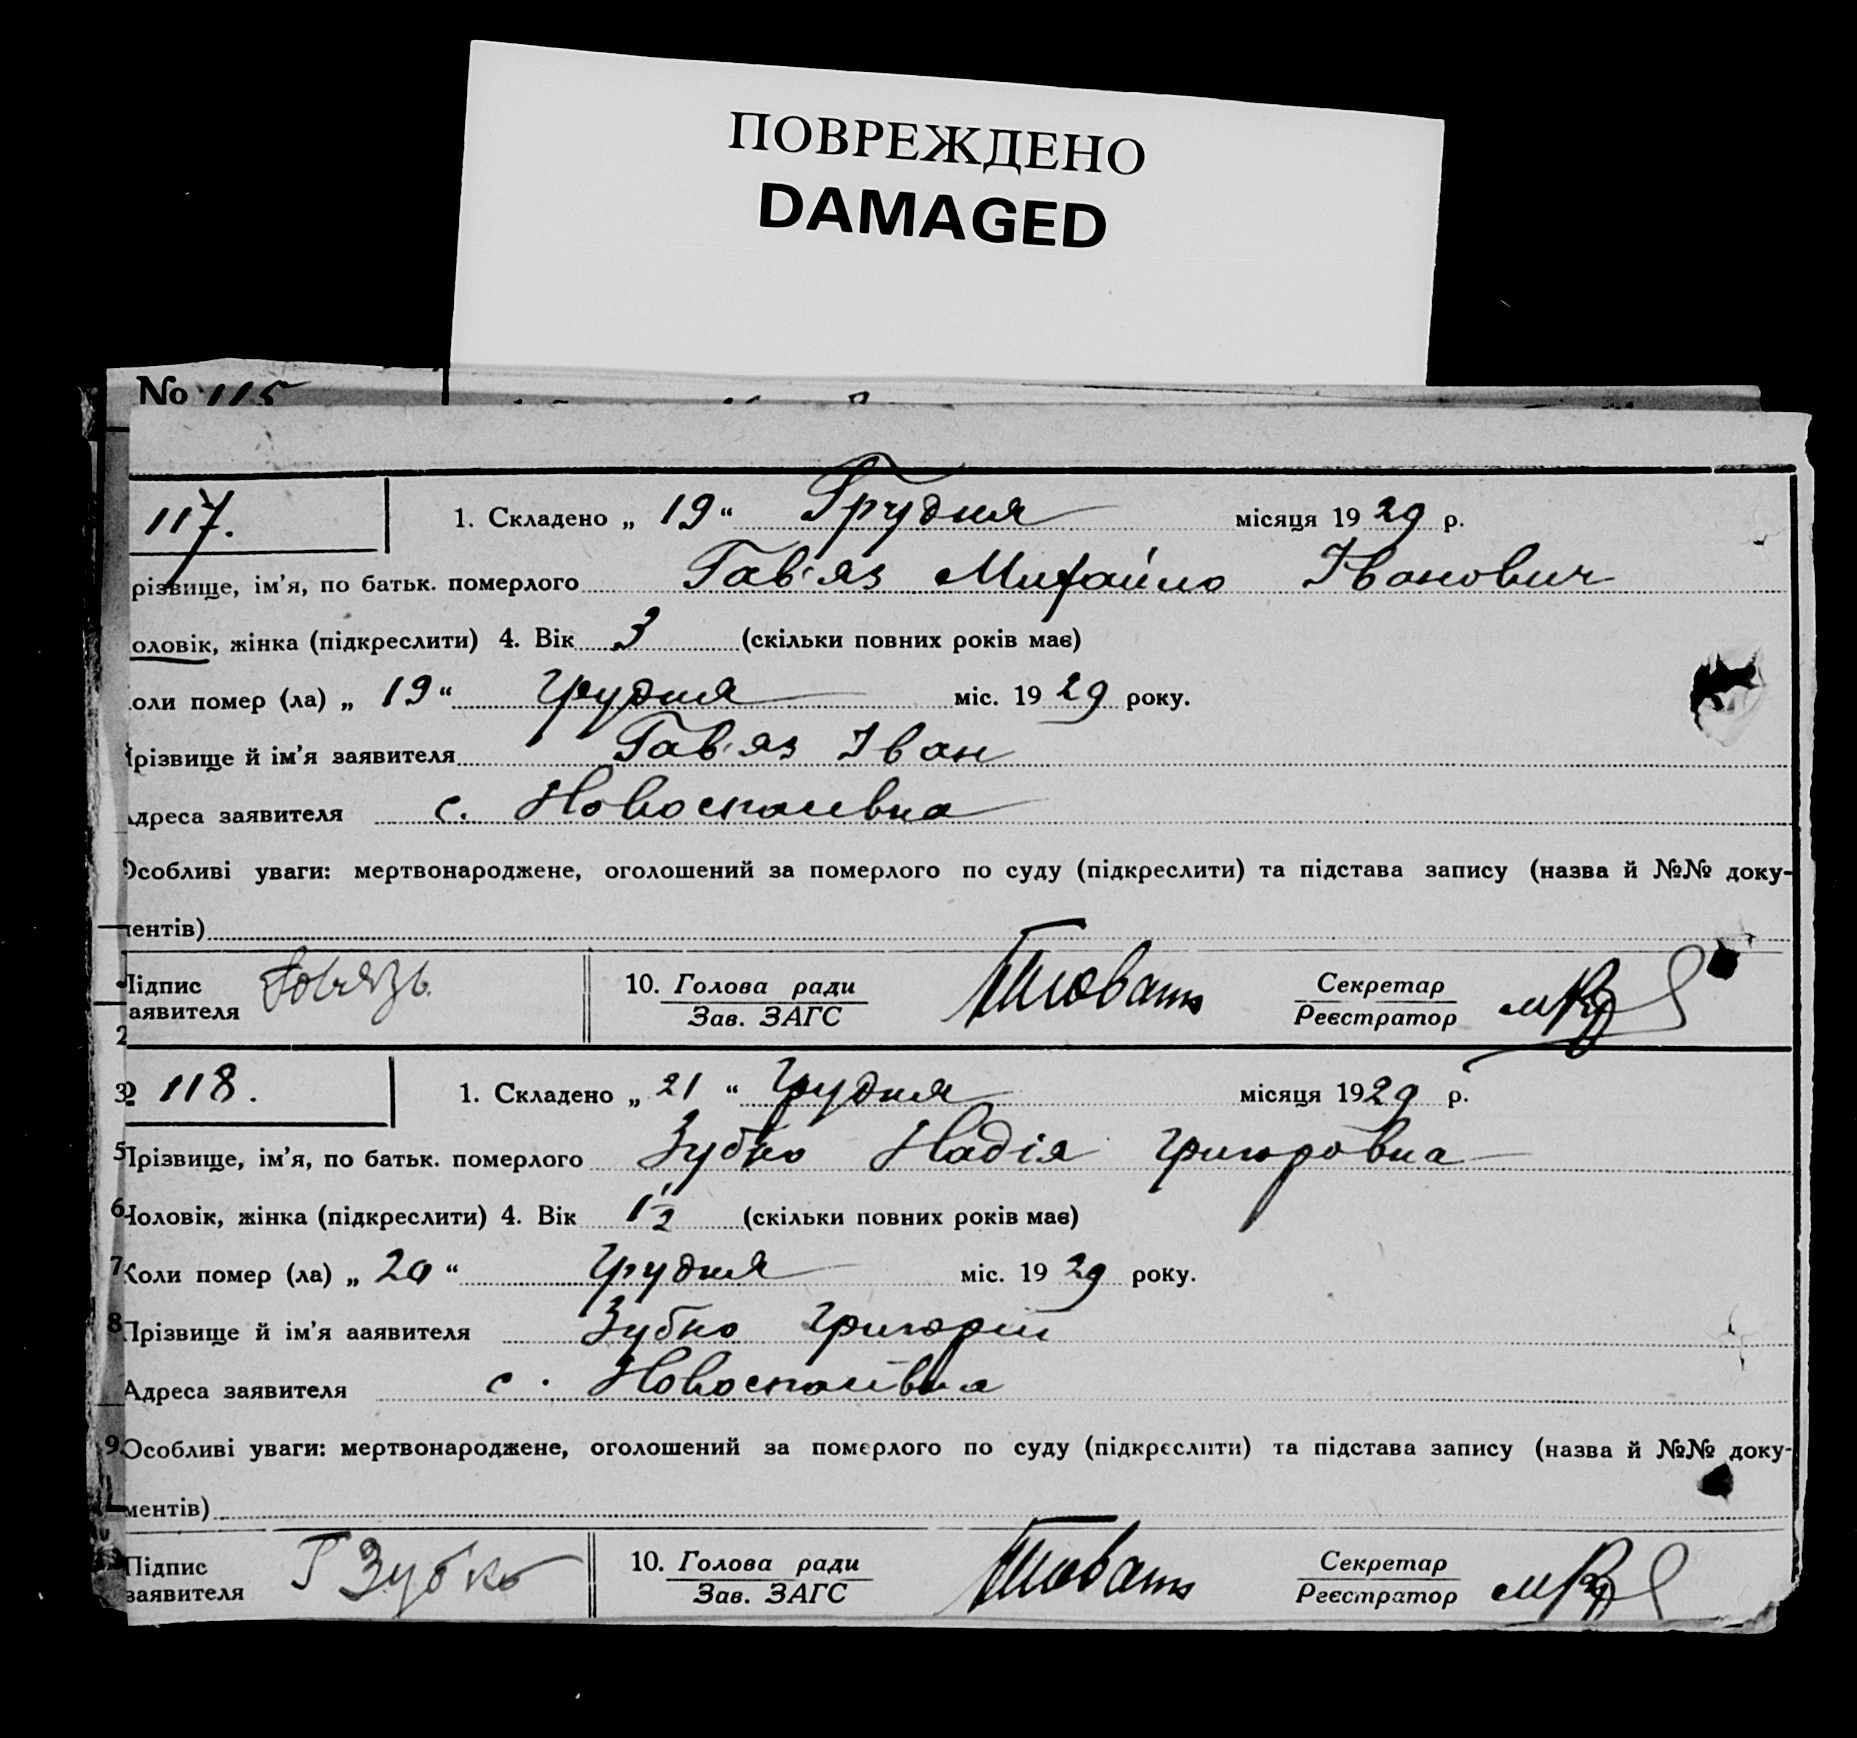 ПОВРЕЖДЕНО
DAMAGED
No 115
117.
1. Складено „ 19 “ Грудня місяця 1929 р.
різвище, ім’я, по батьк. померлого Гав’яз Михайло Іванович
оловік, жінка (підкреслити) 4. Вік 3 (скільки повних років має)
оли помер (ла) „ 19 “ Грудня міс. 1929 року.
різвище й ім’я заявителя Гав’яз Іван
дреса заявителя с. Новоспасівка
Особливі уваги: мертвонароджене, оголошений за померлого по суду (підкреслити) та підстава запису (назва й №№ доку-
ентів)
Підпис заявителя 10. Голова ради Зав. ЗАГС Секретар Реєстратор
118.
1. Складено „ 21 “ Грудня місяця 1929 р.
Прізвище, ім’я, по батьк. померлого Зубко Надія Григоровна
Чоловік, жінка (підкреслити) 4. Вік 1½ (скільки повних років має)
Коли помер (ла) „ 20 “ Грудня міс. 1929 року.
Прізвище й ім’я ааявителя Зубко Григорій
Адреса заявителя с. Новоспасівка
Особливі уваги: мертвонароджене, оголошений за померлого по суду (підкреслити) та підстава запису (назва й №№ доку-
ментів)
Підпис заявителя Г Зубко 10. Голова ради Зав. ЗАГС Секретар Реєстратор